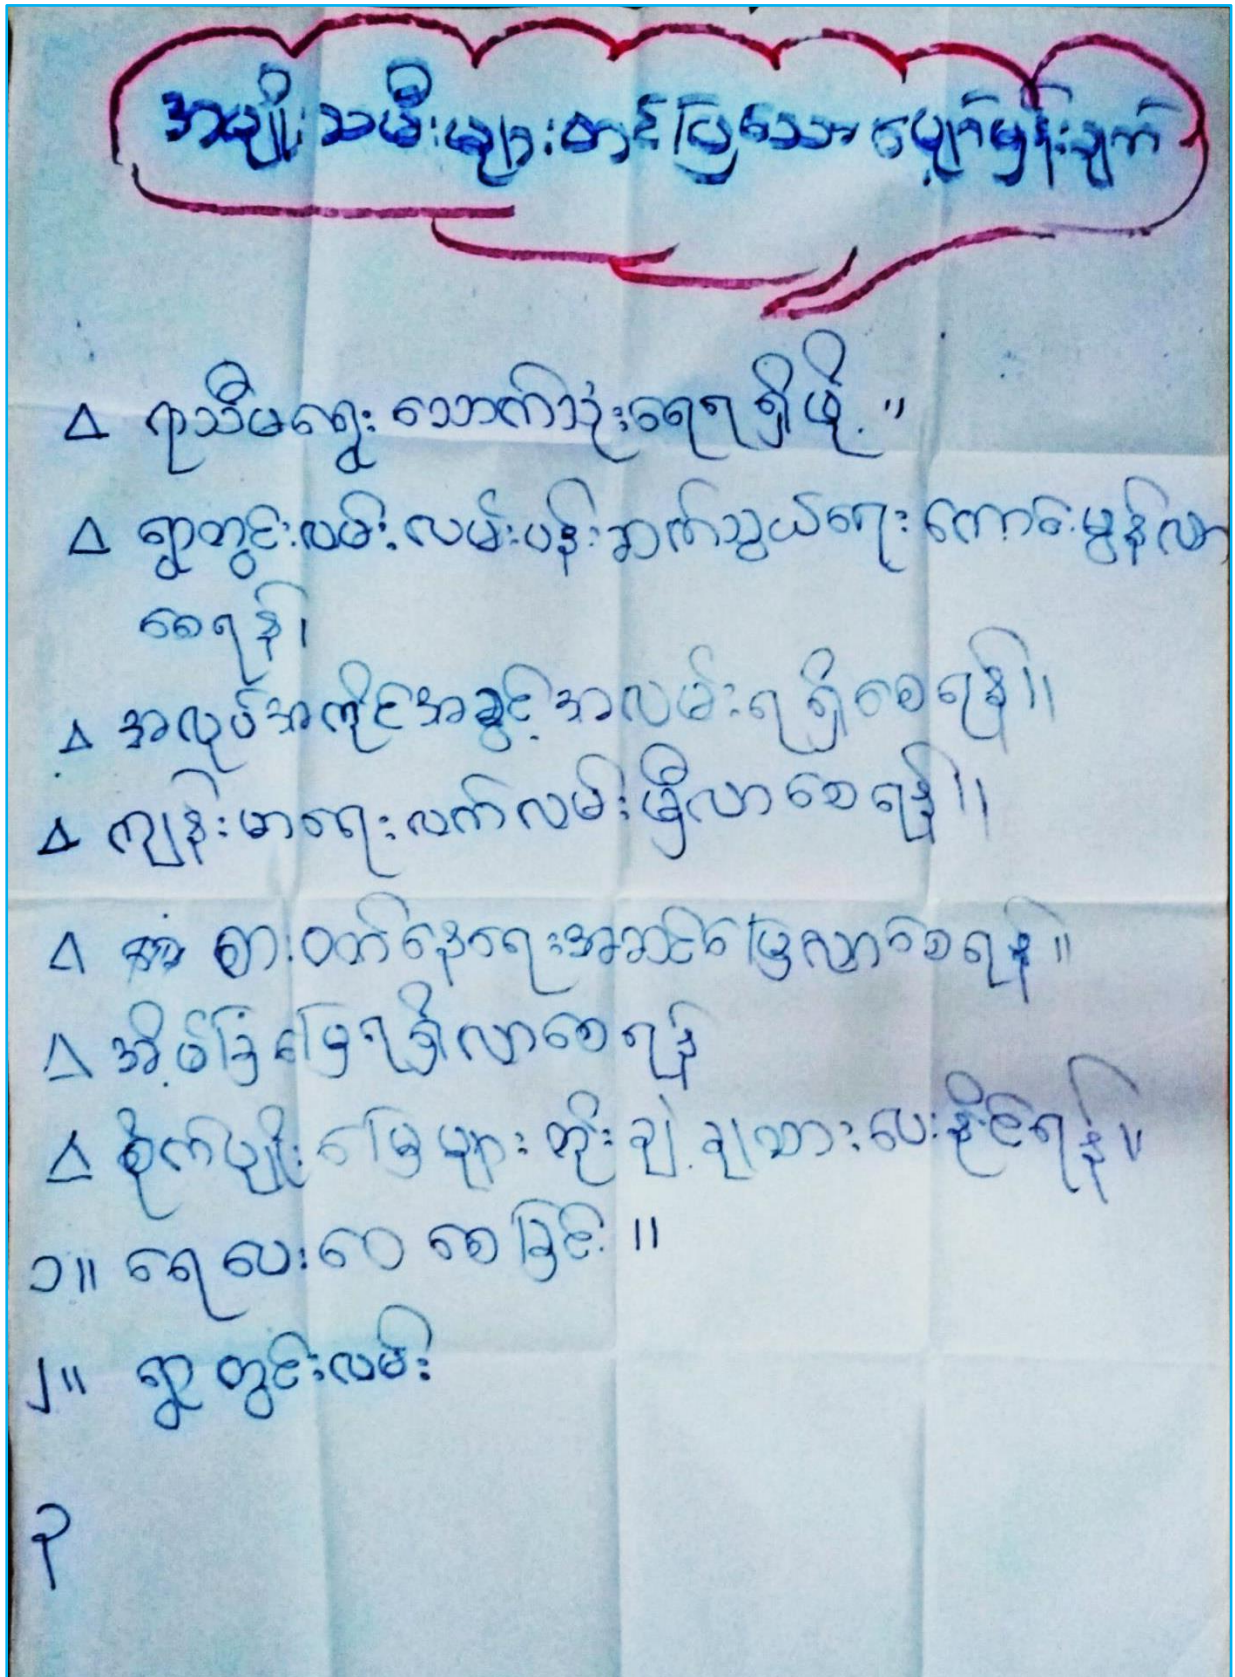 အမျိုးသမီးများတင်ပြသော မျှော်မှန်းချက်
Δ ရာသီမရွေး သောက်သုံးရေရရှိဖို့။
Δ ရွာတွင်းလမ်း၊ လမ်းပန်းဆက်သွယ်ရေး ကောင်းမွန်လာ
စေရန်၊
Δ အလုပ်အကိုင်အခွင့်အလမ်းရရှိစေရန်။
Δ ကျန်းမာရေးလက်လမ်းမှီလာစေရန်။
Δ စားဝတ်နေရေးအဆင်ပြေလာစေရန်။
Δ အိမ်ခြံမြေရရှိလာစေရန်
Δ စိုက်ပျိုးမြေများ တိုးချဲ့ချထားပေးနိုင်ရန်။
၁။ ရေပေးဝေစေခြင်း။
၂။ ရွာတွင်းလမ်း
၃